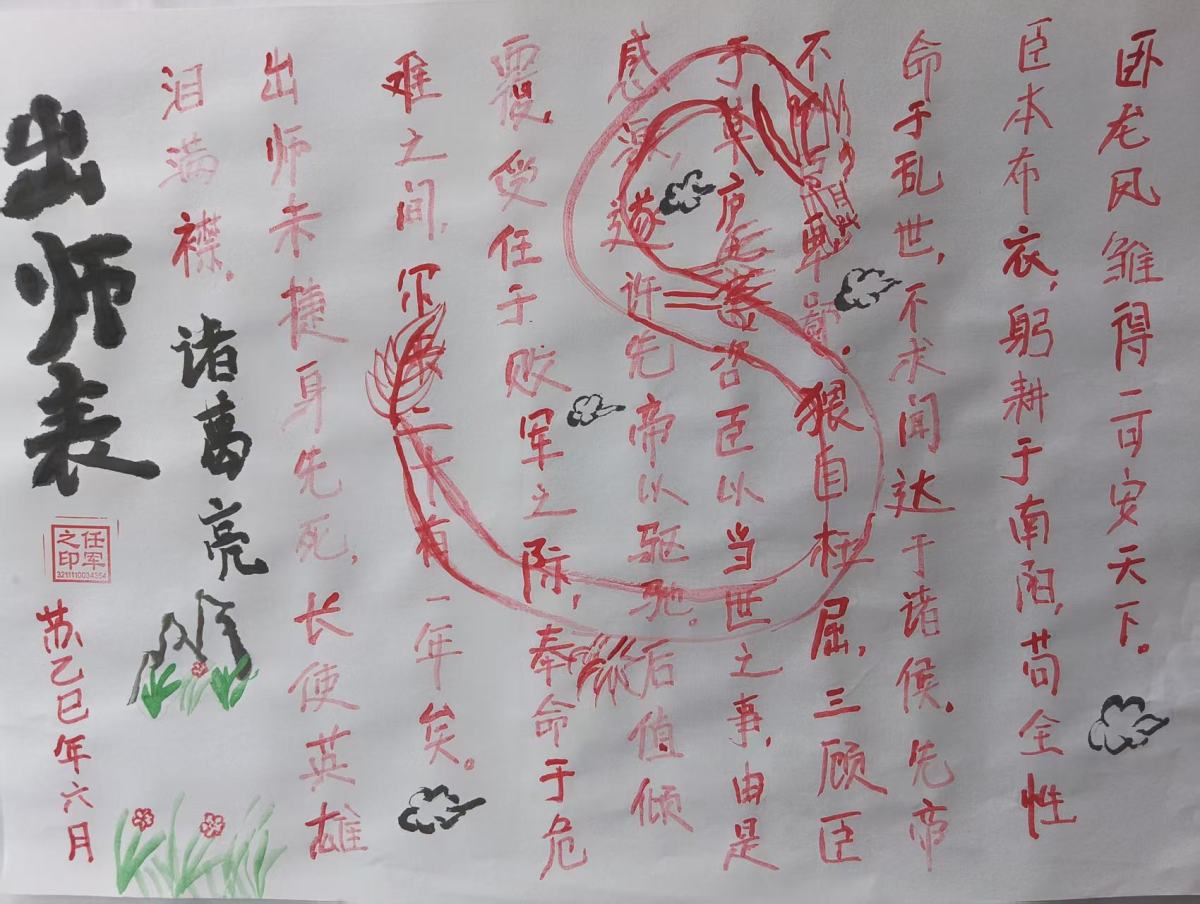 卧龙凤雏得一可安天下。
臣本布衣，躬耕于南阳，苟全性
命于乱世，不求闻达于诸侯。先帝
不以臣卑鄙，猥自枉屈，三顾臣
于草庐之中，咨臣以当世之事，由是
感激，遂许先帝以驱驰。后值倾
覆，受任于败军之际，奉命于危
难之间，尔来二十有一年矣。
出师未捷身先死，长使英雄
泪满襟。
诸葛亮
出师表
任军之印
3211110034354
苏乙巳年六月